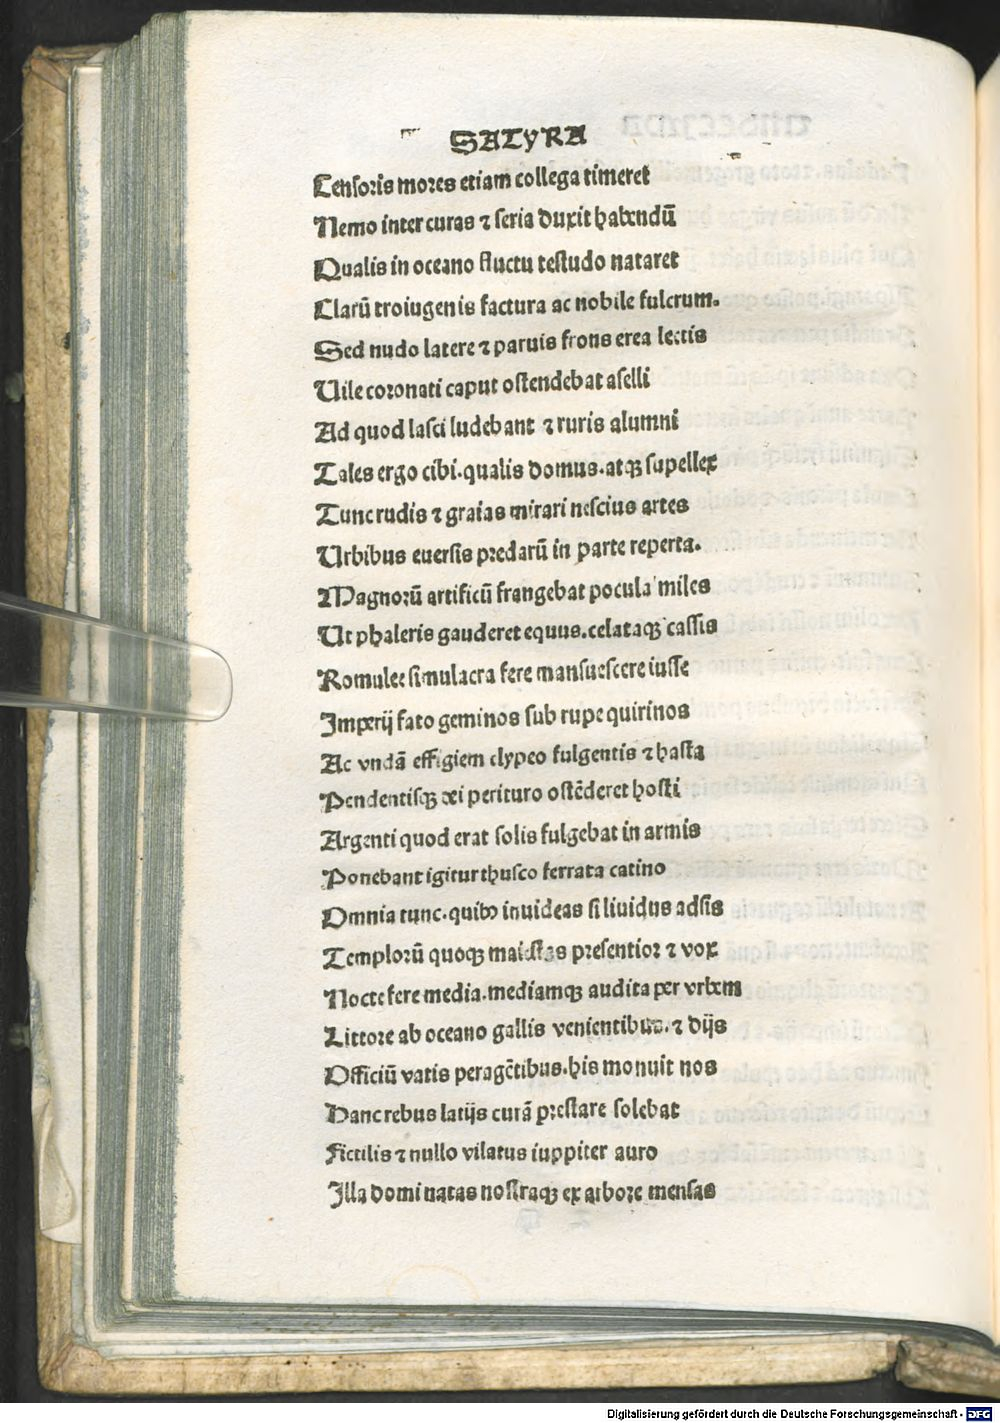 SATYRA
Censoris mores etiam collega timeret
Nemo inter curas ⁊ seria duxit habendū
Qualis in oceano fluctu testudo nataret
Clarū troiugenis factura ac nobile fulcrum.
Sed nudo latere ⁊ paruis frons erea lectis
Uile coronati caput ostendebat aselli
Ad quod lasci ludebant ⁊ ruris alumni
Tales ergo cibi.qualis domus.atqꝫ supellex
Tunc rudis ⁊ graias mirari nescius artes
Urbibus euersis predarū in parte reperta.
Magnorū artificū frangebat pocula miles
Ut phaleris gauderet equus.celataqꝫ cassis
Romulee simulacra fere mansuescere iusse
Imperij fato geminos sub rupe quirinos
Ac vndā effigiem clypeo fulgentis ⁊ hasta
Pendentisqꝫ dei perituro ostēderet hosti
Argenti quod erat solis fulgebat in armis
Ponebant igitur thusco ferrata catino
Omnia tunc.quibꝰ inuideas si liuidus adsis
Templorū quoqꝫ maiestas presentior ⁊ vox
Nocte fere media.mediamqꝫ audita per vrbem
Littore ab oceano gallis venientibus.⁊ dijs
Officiū vatis peragētibus.his monuit nos
Hanc rebus latijs curā prestare solebat
Fictilis ⁊ nullo vilatus iuppiter auro
Illa domi natas nostraqꝫ ex arbore mensas
Digitalisierung gefördert durch die Deutsche Forschungsgemeinschaft - DFG